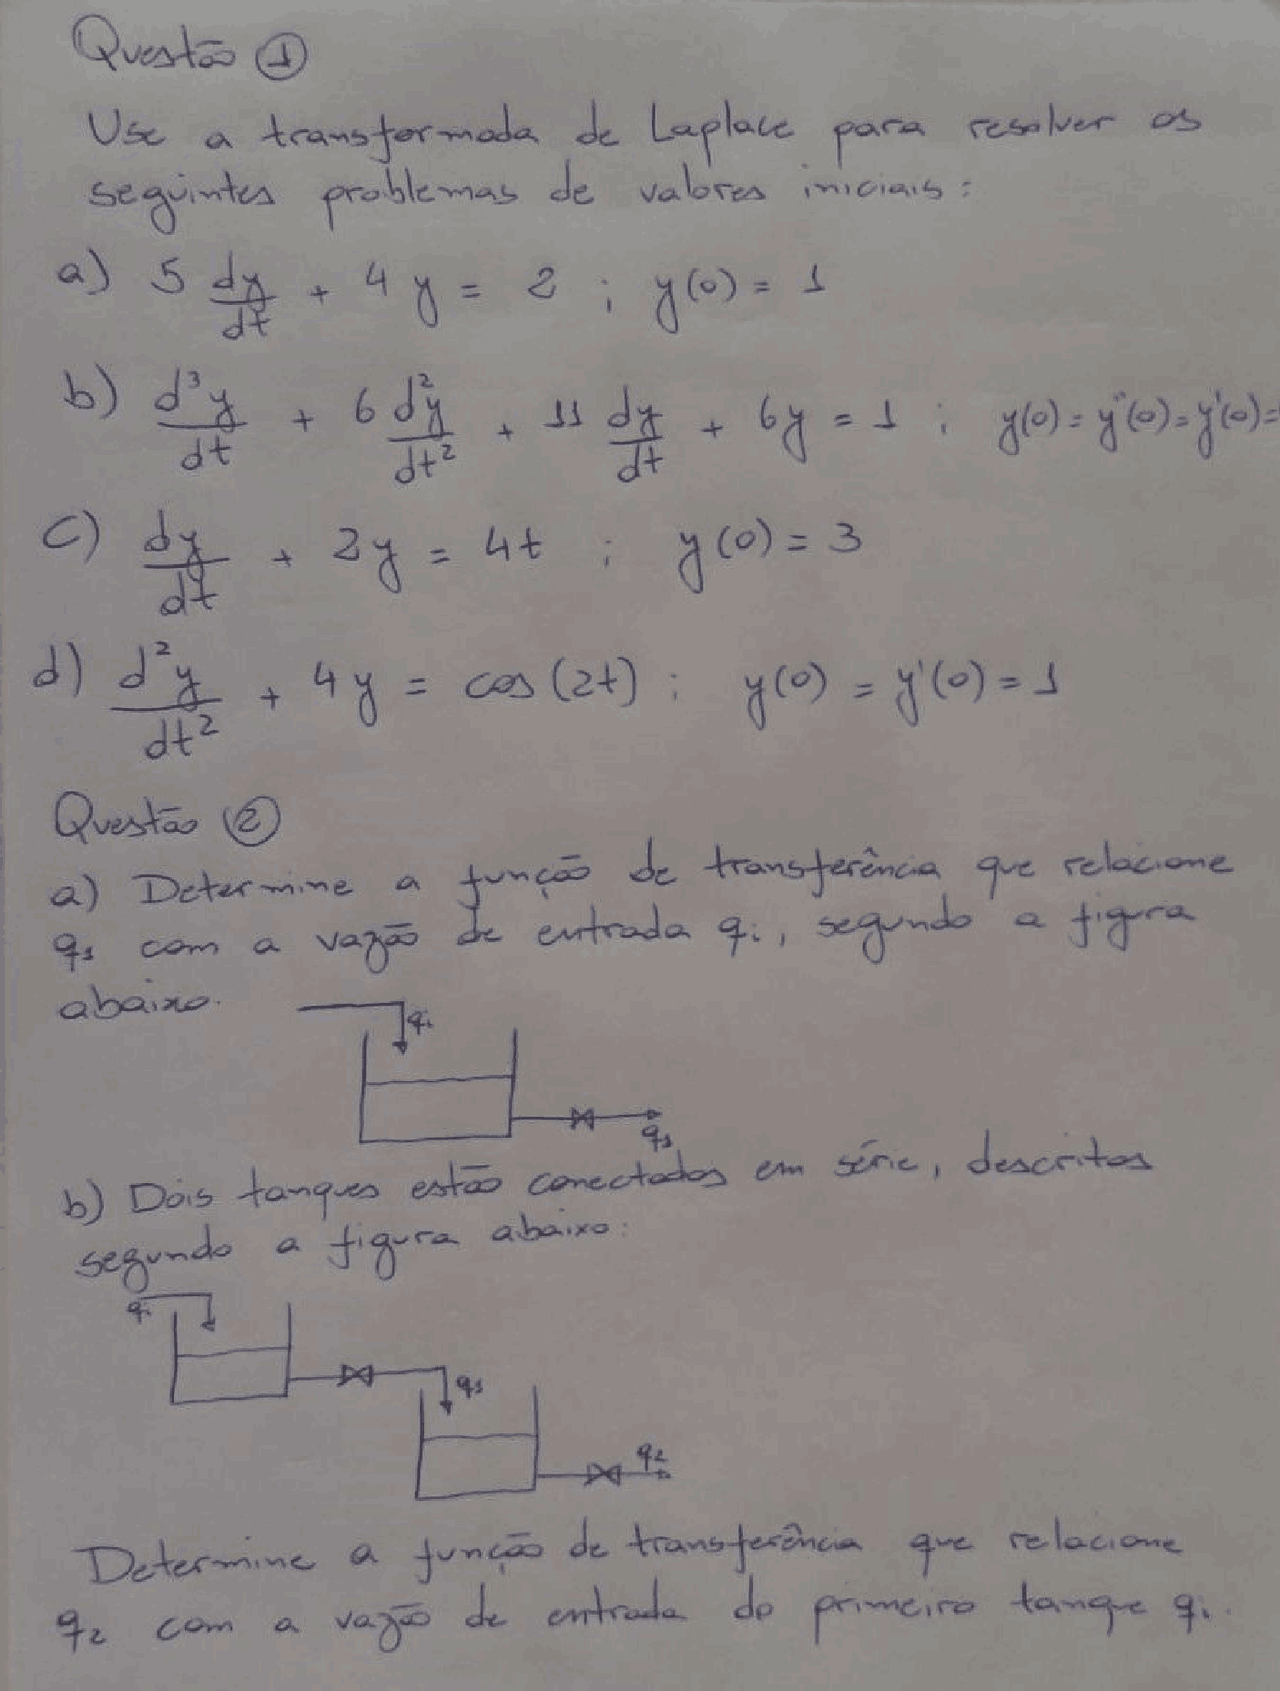 Questão ①
Use a transformada de Laplace para resolver os
seguintes problemas de valores iniciais:
a) 5 dy/dt + 4y = 2 ; y(0) = 1
b) d³y/dt + 6 d²y/dt² + 11 dy/dt + 6y = 1 ; y(0) = y''(0) = y'(0) =
c) dy/dt + 2y = 4t ; y(0) = 3
d) d²y/dt² + 4y = cos(2t) ; y(0) = y'(0) = 1
Questão ②
a) Determine a função de transferência que relacione
q₁ com a vazão de entrada qᵢ, segundo a figura
abaixo.
qᵢ
q₁
b) Dois tanques estão conectados em série, descritos
segundo a figura abaixo:
qᵢ
q₁
q₂
Determine a função de transferência que relacione
q₂ com a vazão de entrada do primeiro tanque qᵢ.